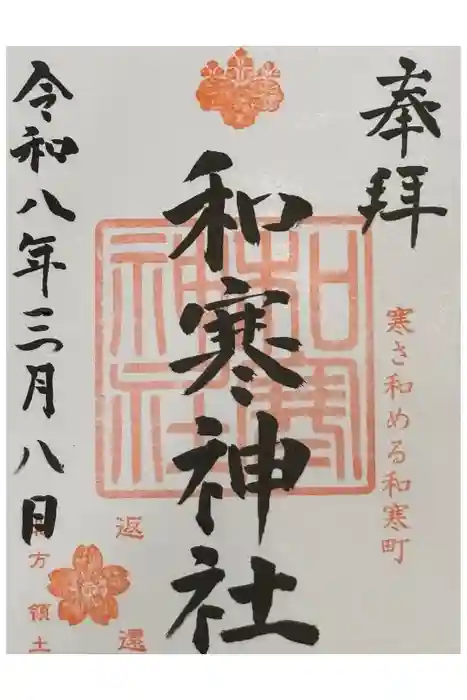 奉拝
寒さ和める和寒町
和寒神社
和寒神社
令和八年三月八日
返還
方領土